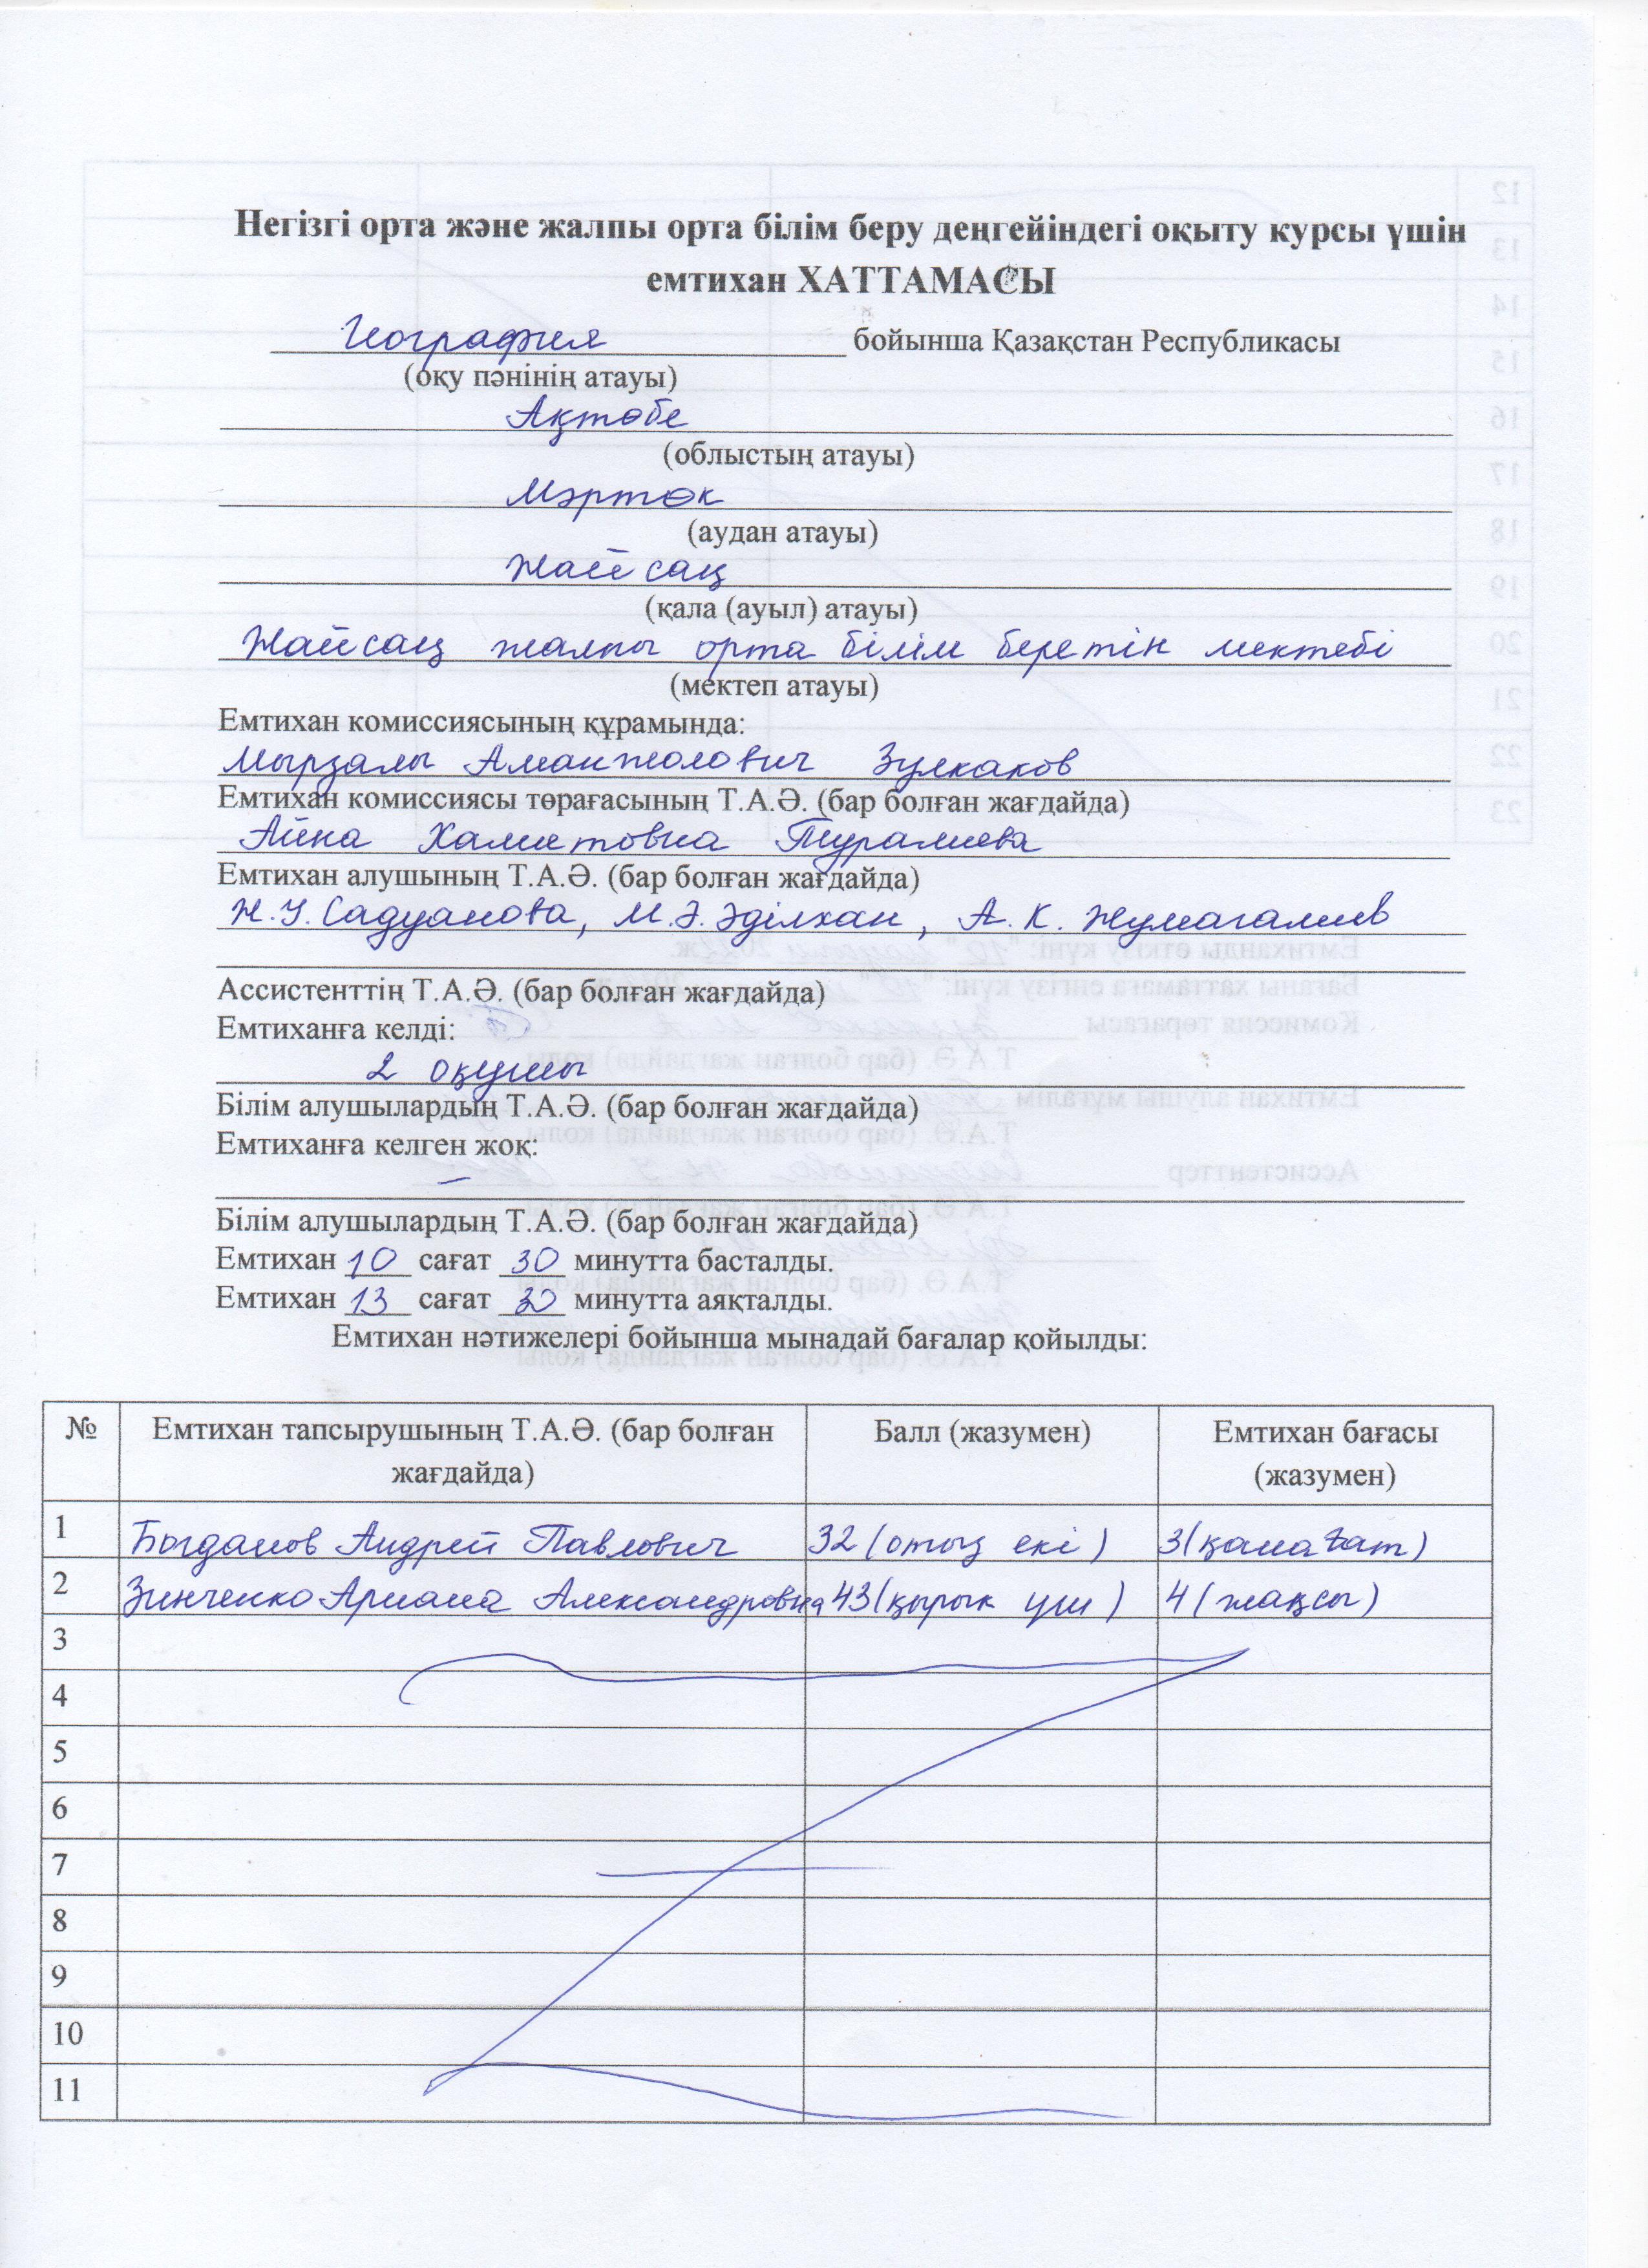 Негізгі орта және жалпы орта білім беру деңгейіндегі оқыту курсы үшін
емтихан ХАТТАМАСЫ
География бойынша Қазақстан Республикасы
(оқу пәнінің атауы)
Ақтөбе
(облыстың атауы)
Мәртөк
(аудан атауы)
Жайсаң
(қала (ауыл) атауы)
Жайсаң жалпы орта білім беретін мектебі
(мектеп атауы)
Емтихан комиссиясының құрамында:
Мырзалы Аманжолович Зулкаков
Емтихан комиссиясы төрағасының Т.А.Ә. (бар болған жағдайда)
Айна Хамитовна Туралиева
Емтихан алушының Т.А.Ә. (бар болған жағдайда)
Н.У. Садуанова, М.Ә. Әділхан, А.К. Жумагалиев
Ассистенттің Т.А.Ә. (бар болған жағдайда)
Емтиханға келді:
2 оқушы
Білім алушылардың Т.А.Ә. (бар болған жағдайда)
Емтиханға келген жоқ:
–
Білім алушылардың Т.А.Ә. (бар болған жағдайда)
Емтихан 10 сағат 30 минутта басталды.
Емтихан 13 сағат 30 минутта аяқталды.
Емтихан нәтижелері бойынша мынадай бағалар қойылды:
№ Емтихан тапсырушының Т.А.Ә. (бар болған жағдайда) Балл (жазумен) Емтихан бағасы (жазумен)
1 Богданов Андрей Павлович 32 (отыз екі) 3 (қанағат)
2 Зинченко Ариана Александровна 43 (қырық үш) 4 (жақсы)
3
4
5
6
7
8
9
10
11